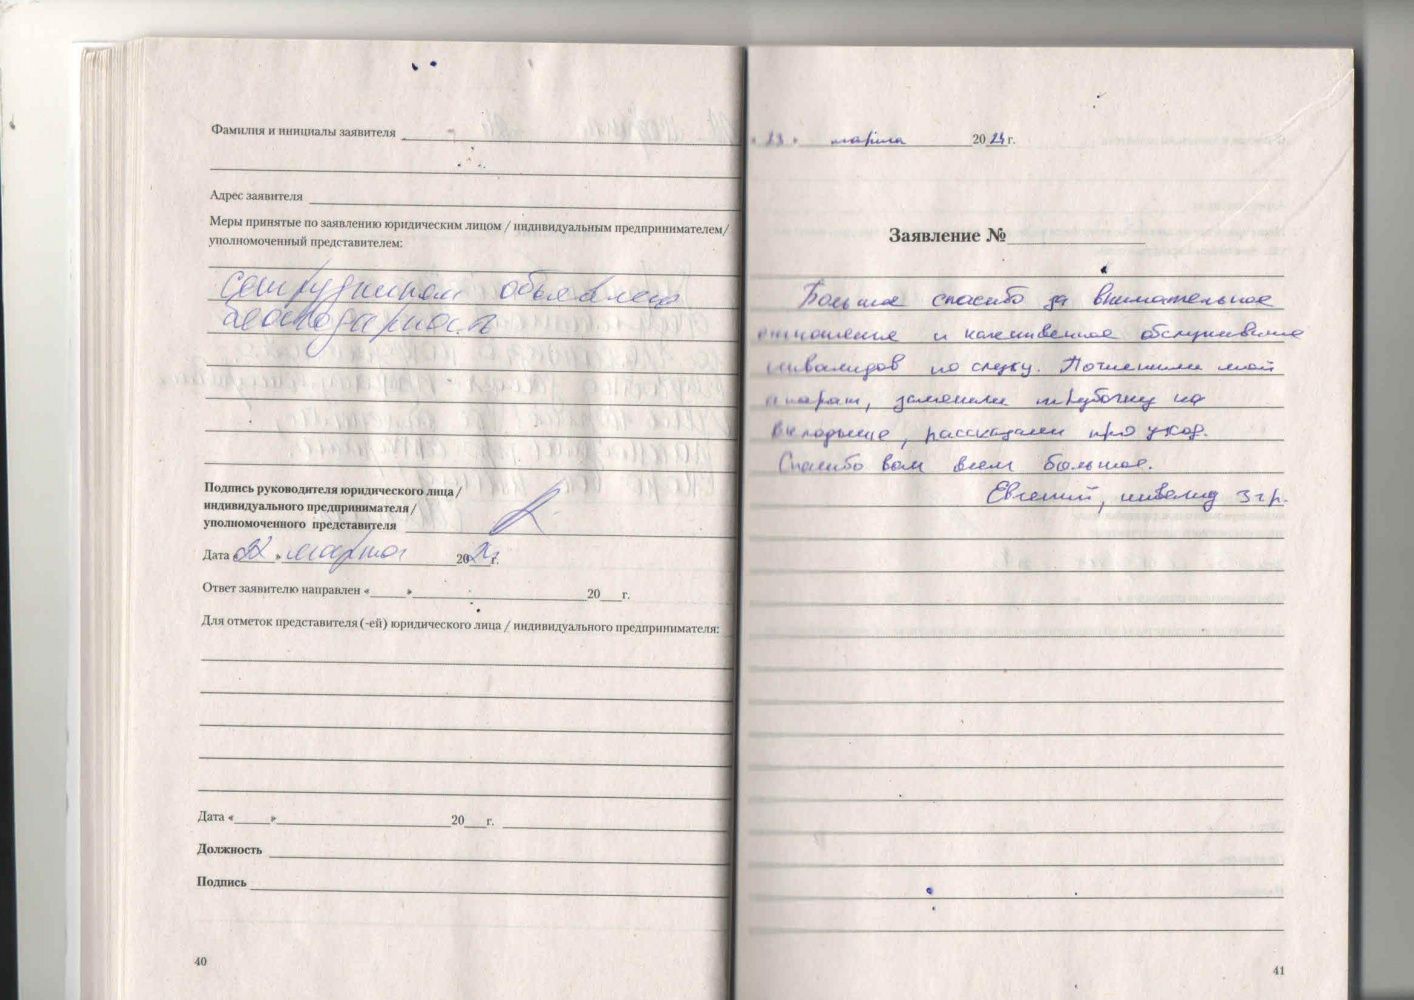 Фамилия и инициалы заявителя
Адрес заявителя
Меры принятые по заявлению юридическим лицом / индивидуальным предпринимателем/
уполномоченный представителем:
Сотрудникам объявлена
благодарность
Подпись руководителя юридического лица /
индивидуального предпринимателя /
уполномоченного представителя
Дата « » марта 20 г.
Ответ заявителю направлен « » 20 г.
Для отметок представителя (-ей) юридического лица / индивидуального предпринимателя:
Дата « » 20 г.
Должность
Подпись
40
« 23 » марта 2024 г.
Заявление №
Большое спасибо за внимательное
отношение и качественное обслуживание
инвалидов по слуху. Починили мой
апарат, заменили трубочку на
вкладыше, рассказали про уход.
Спасибо вам всем большое.
Евгений, инвалид 3 гр.
41